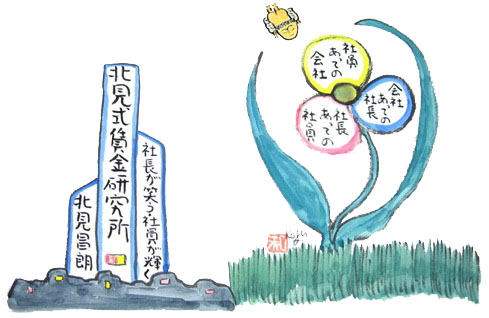 北見式賃金研究所
社長が笑う社員が輝く
北見昌朗
社員
あっての
会社
会社
あっての
社長
社長
あっての
社員